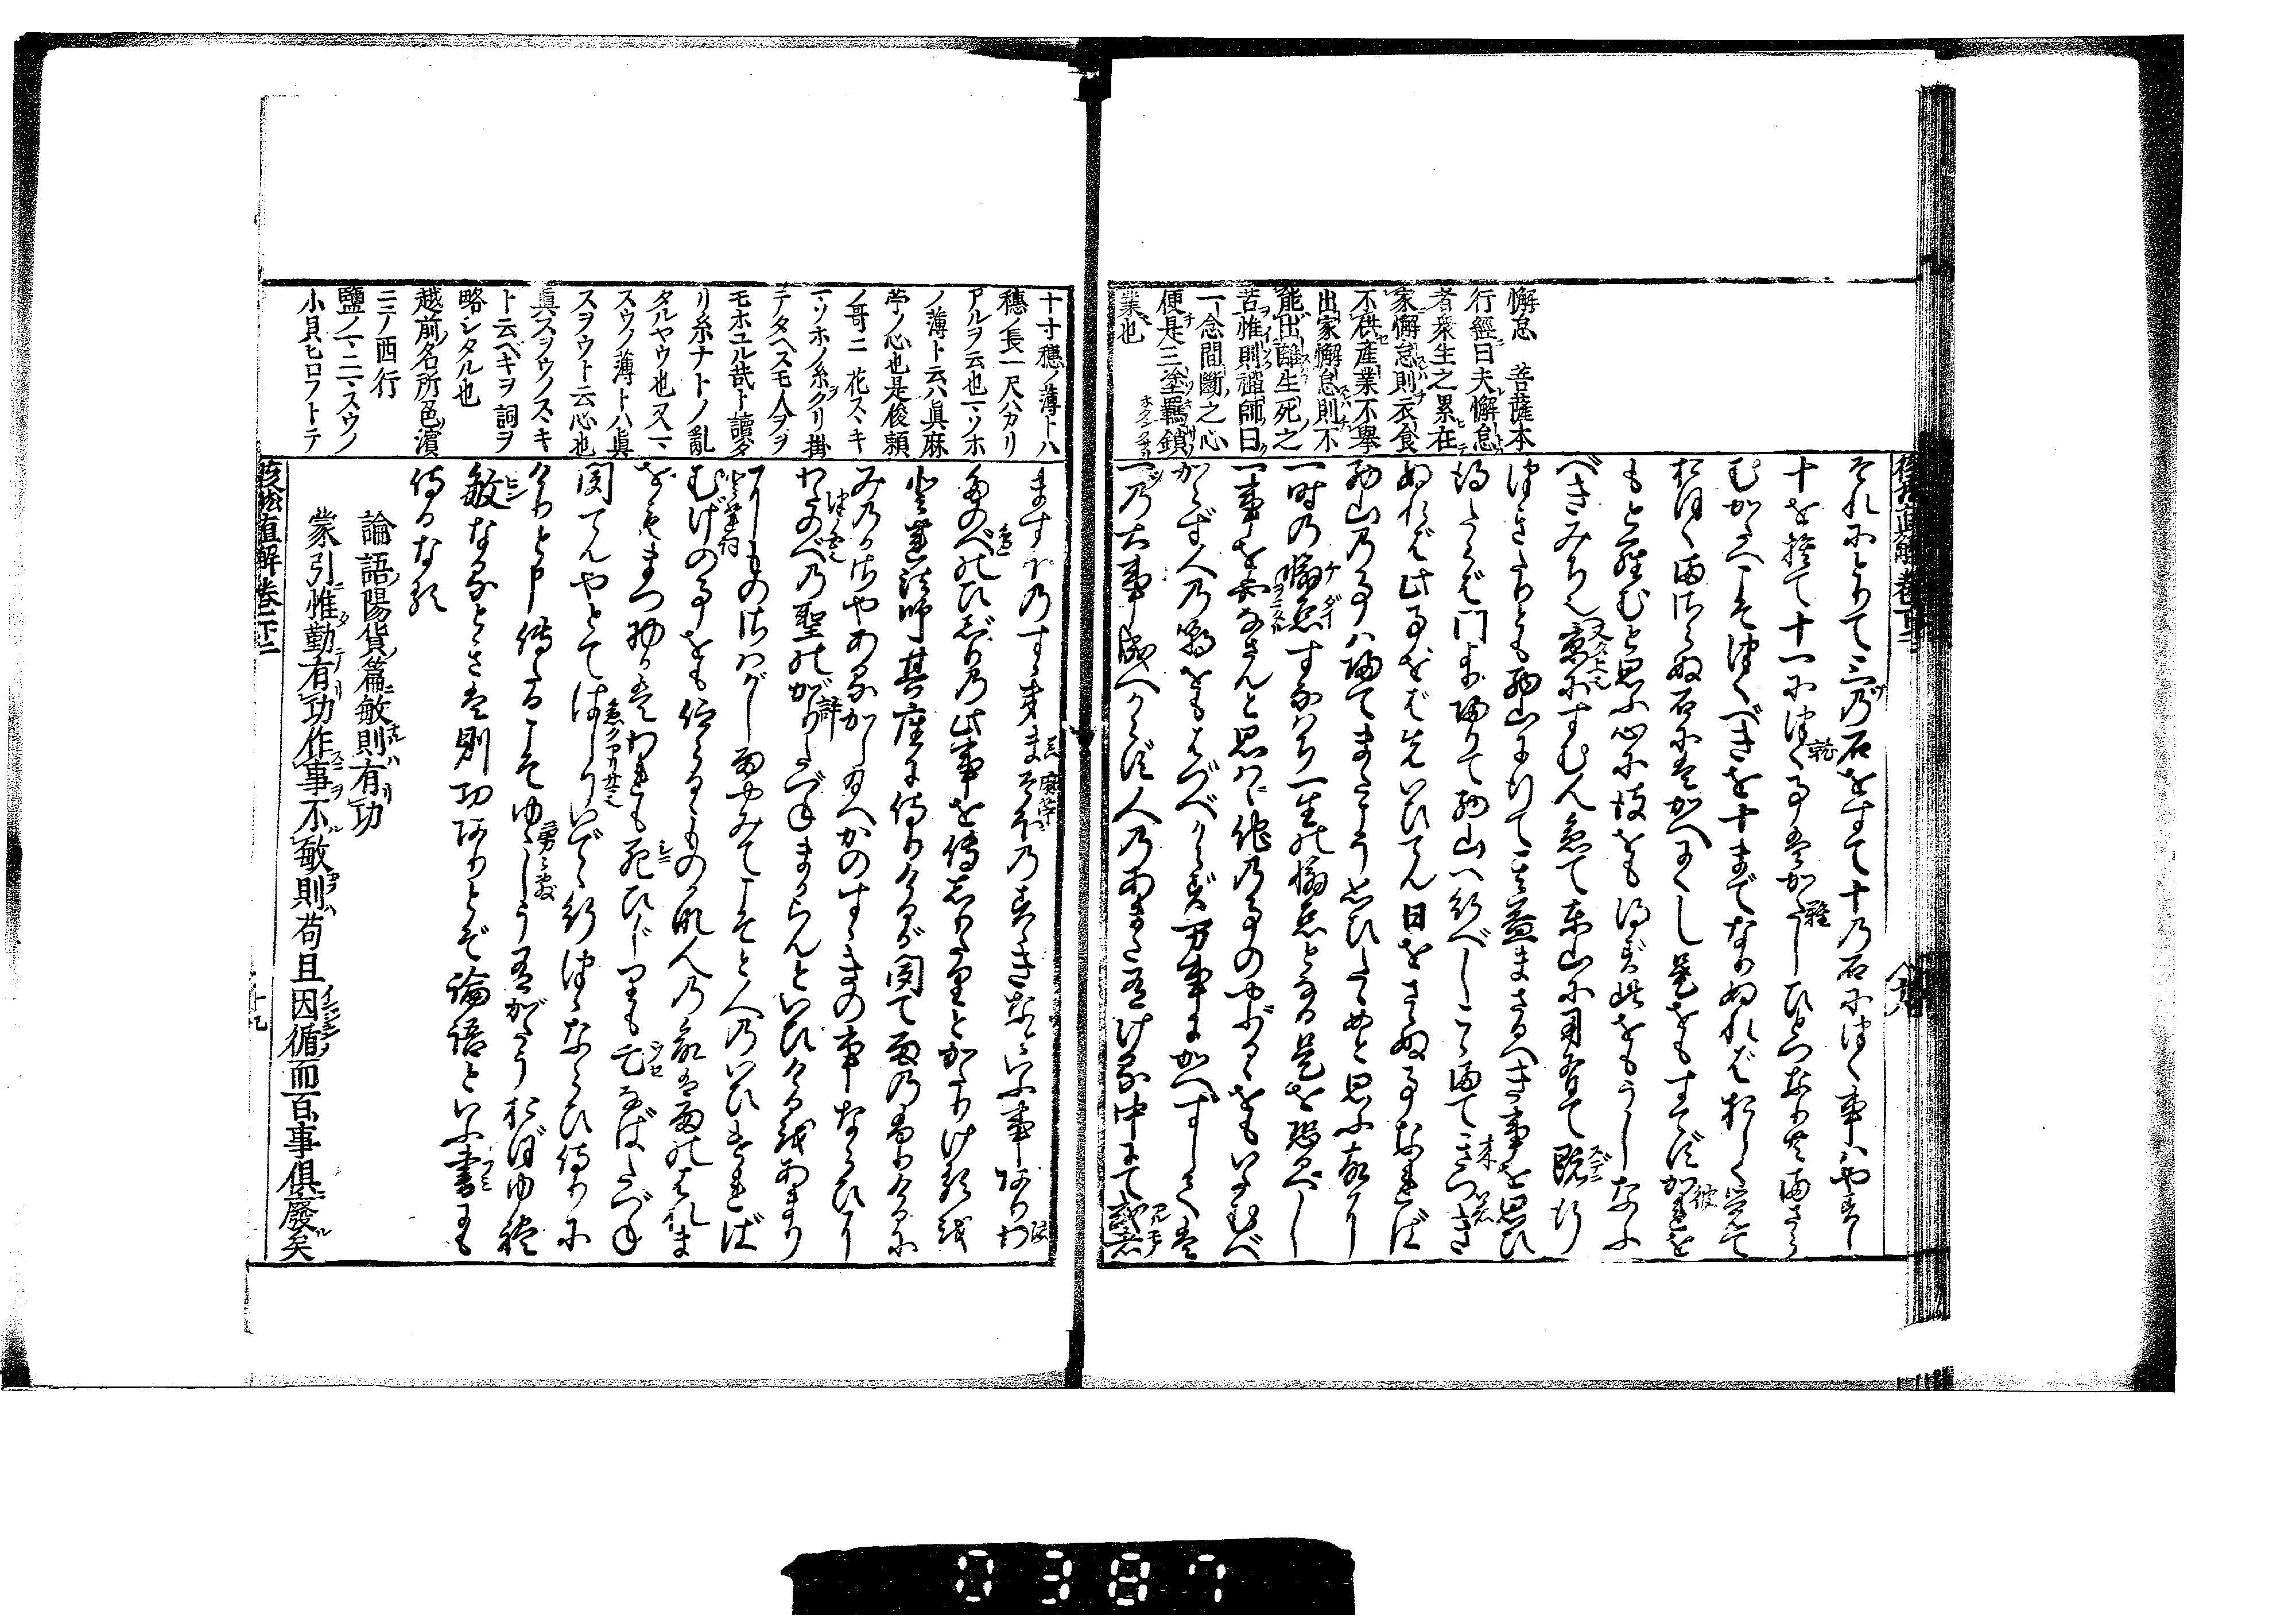 懈怠　菩薩本
行經曰夫懈怠
者衆生之累在
家懈怠則衣食
不供産業不擧
出家懈怠則不
能出離生死之
苦惟則禪師曰
一念間斷之心
便是三塗羈鎖
業也
それにとりて三乃石をすて十乃石につく事ハやすし
十を捨て十一につく事はかたしひとつなり共まさら
むかたへこそつくべきを十までなりぬればおしく覚て
おほくまさらぬ石にはかへにくし是をもすてずかれを
もとらむと思ふ心に彼をも得ず此をもうしなふ
べきみち也京にすむ人急て東山に用有て既に行
つきたりとも西山に行て其益まさるべき事を思ひ
得たらば門より帰りて西山へ行べしこゝ迄きつき
ぬれば此事をば先いひてん日をさゝぬ事なれば
西山乃事ハ帰てまたこそ思ひたゝめと思ふ故に
一時乃懈怠すなハち一生の懈怠となる是を恐るべし
一事を必なさんと思ハヾ他乃事のやぶるゝをもいたむべ
からず人乃嘲をもはづべからず万事にかへずしては
一乃大事成べからず人乃あまた有ける中にて或者
十寸穗ノ薄トハ
穗ノ長一尺ハカリ
アルヲ云也マソホ
ノ薄ト云ハ眞麻
苧ノ心也是俊頼
ノ哥ニ花スヽキ
マソホノ糸クリ掛
テタヘスモ人ヲヲ
モホユル哉ト讀タ
リ糸ナトノ亂
タルヤウ也又マ
スウノ薄トハ眞
スヲウト云心也
眞スヲウノスヽキ
ト云ベキヲ詞ヲ
略シタル也
越前名所色濱
ニテノ西行
鹽ノマニマスウノ
小貝ヒロフトテ
ますほ乃すゝきまそほ乃すゝきなどいふ事ありわ
たのべのひじり乃此事を傳しりたりとかたりけるを
登蓮法師其座に侍りけるが聞て雨乃ふりけるに
みのかさやあるかし給へかのすゝきの事ならひに
わたのべ乃聖のがりたづねまからんといひけるをあまり
にものさハがし雨やみてこそと人乃いひければ
むげの事をも仰らるゝものかな人乃命は雨のはれま
をもまつ物かはわれも死ひじりもうせなばたづね
聞てんやとてはしりいでゝ行つゝならひ侍りに
けりと申傳たるこそゆゝしう有がたうおぼゆれ
敏なるときは則功ありとぞ論語といふ書にも
侍るなる
論語陽貨篇敏則有功
蒙引惟勤有功作事不敏則苟且因循而百事俱廢矣
0387